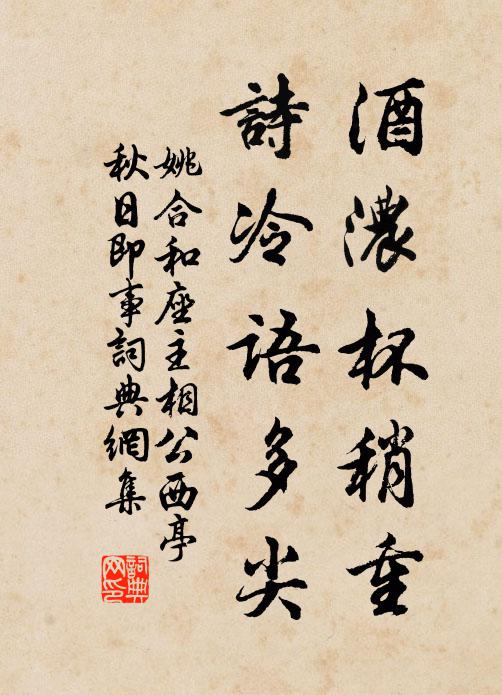 酒濃杯稍重
詩冷語多尖
姚合和座主相公西亭
秋日即事詞典網集
詞典网印